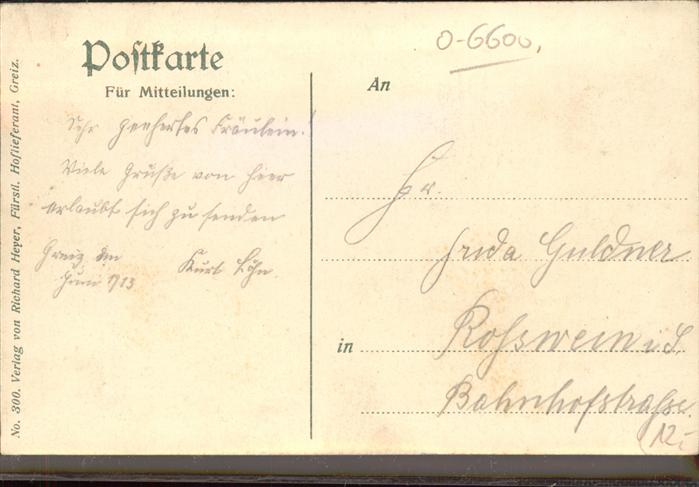 O-6600,
Postkarte
Für Mitteilungen:
An
Sehr geehertes Fräulein!
Viele Grüße von hier
erlaubt sich zu senden
Greiz, den
Juni 1913
Kurt
Fr.
Frida Guldner
in Rosswein i. S.
Bahnhofstrasse
No. 300. Verlag von Richard Heyer, Fürstl. Hoflieferant, Greiz.